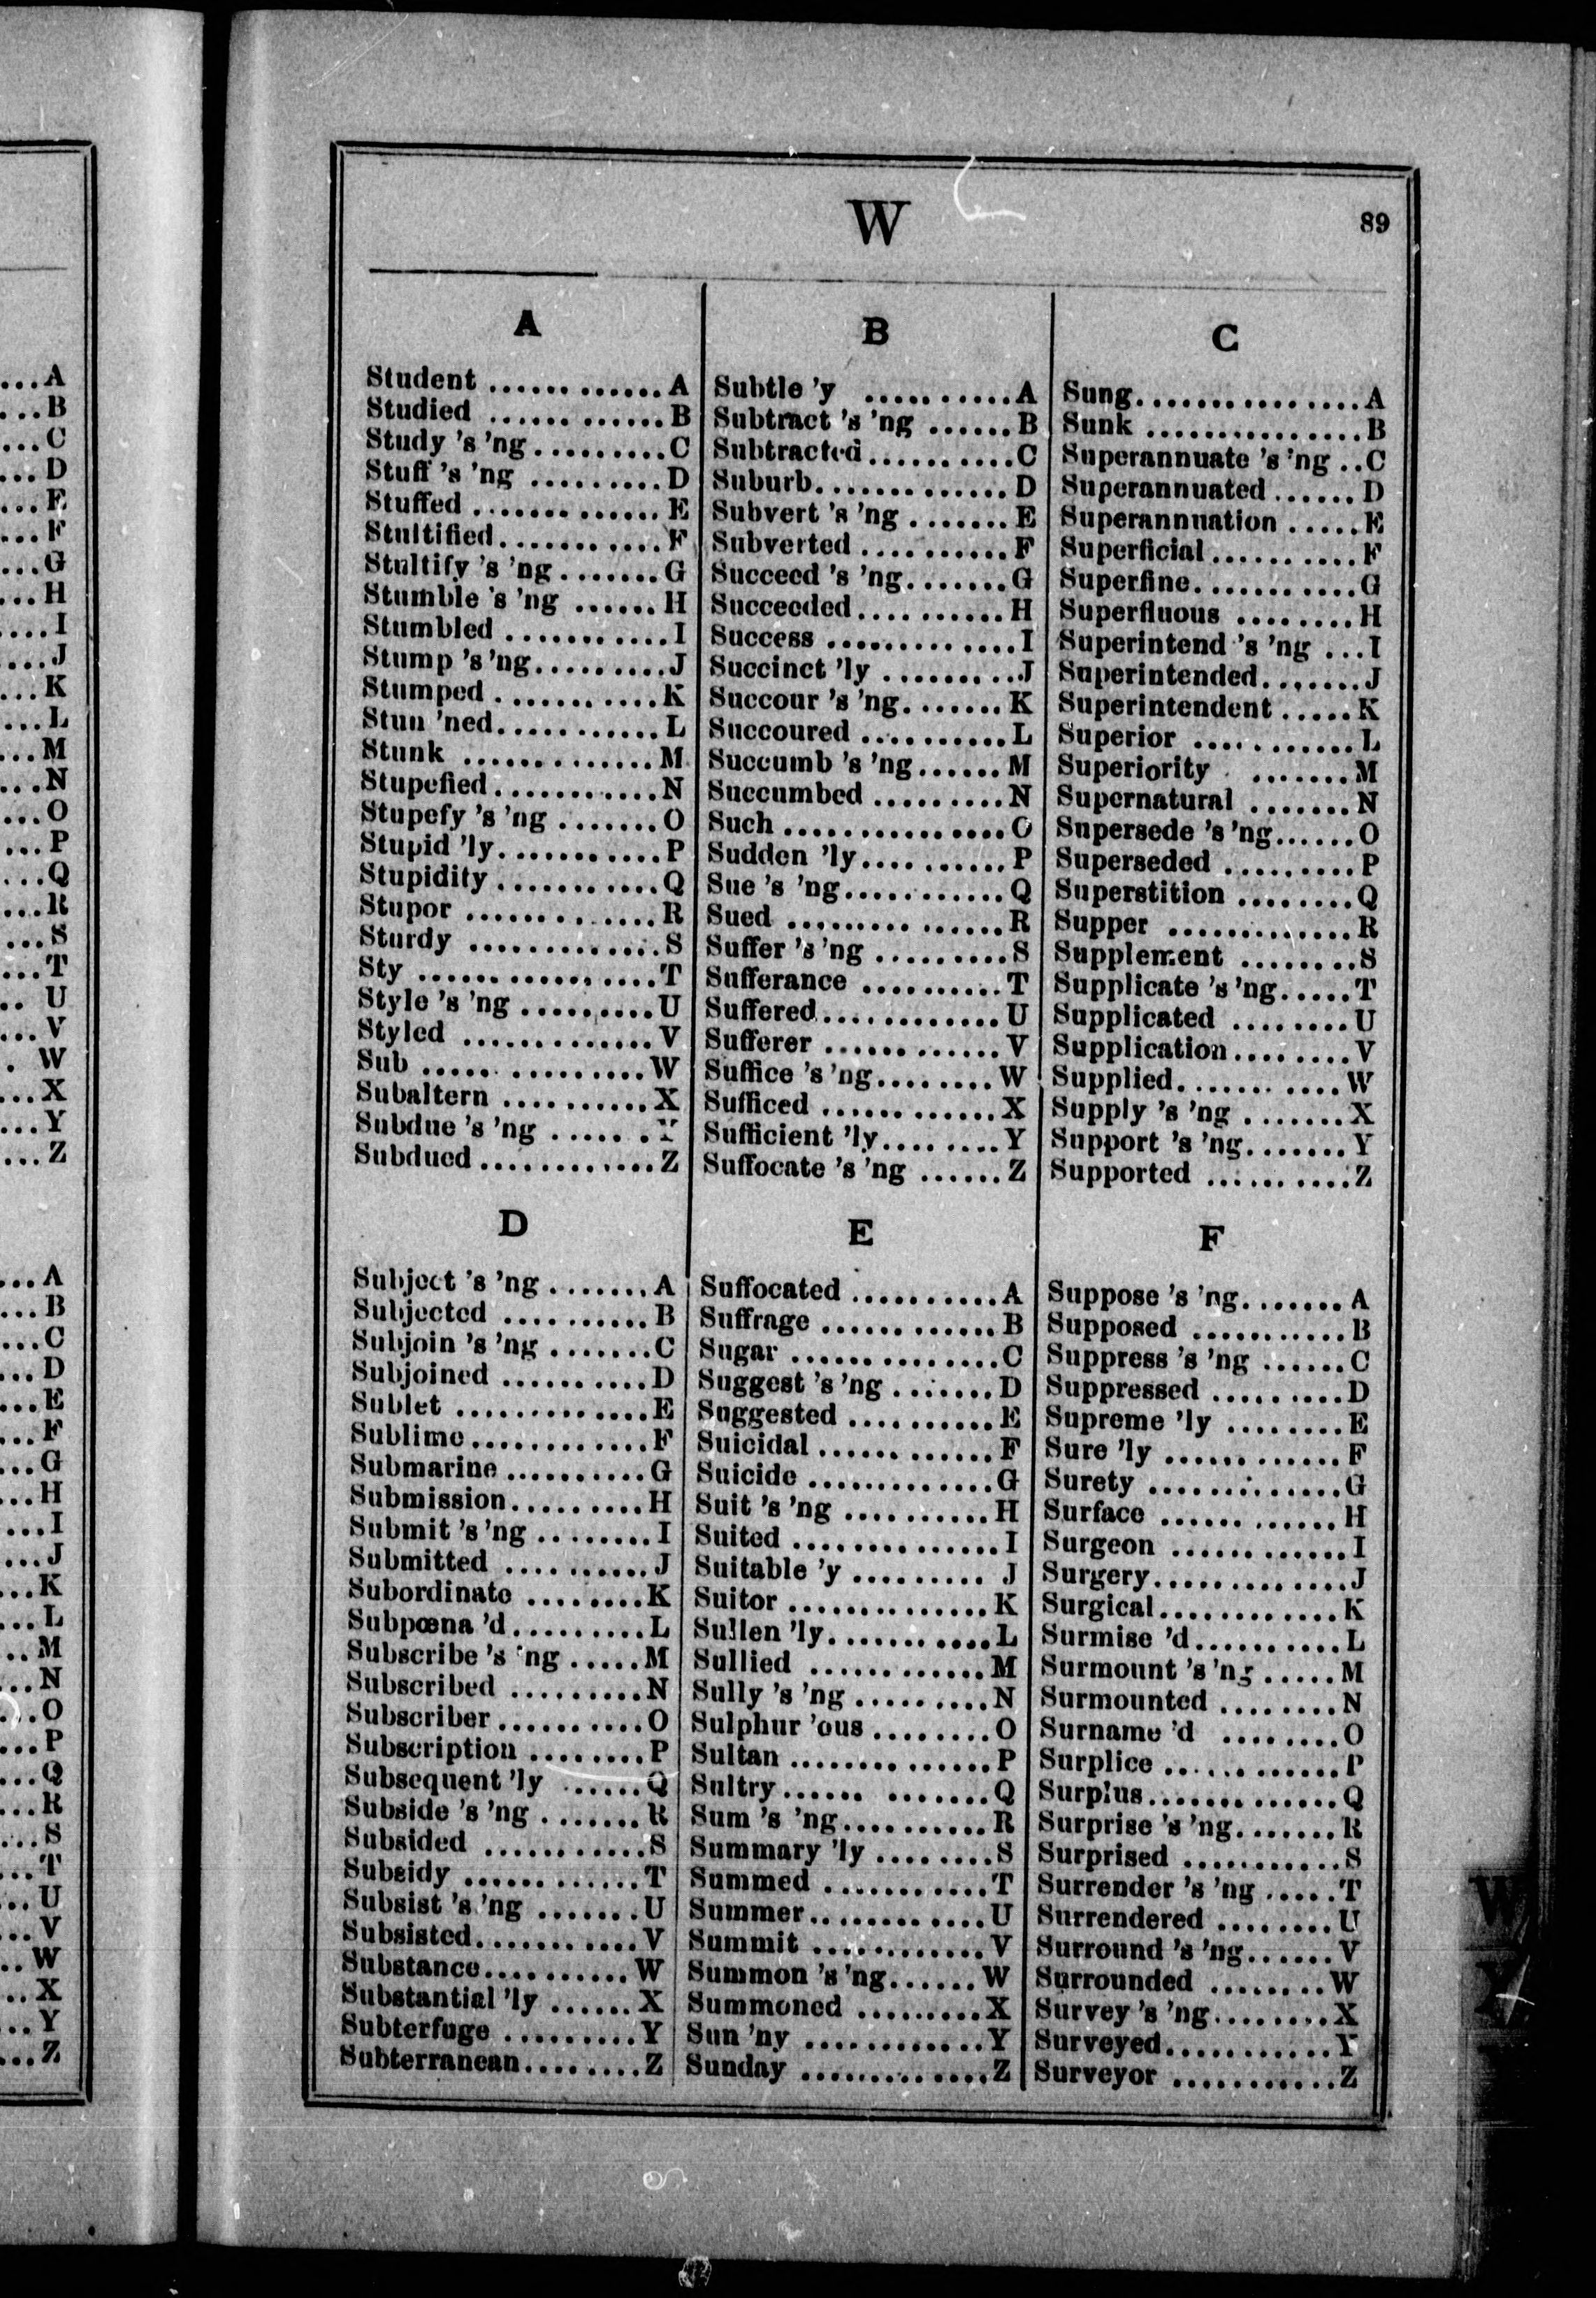 W
89
A
Student ............ A
Studied ............ B
Study 's 'ng ......... C
Stuff 's 'ng ......... D
Stuffed ............ E
Stultified ........... F
Stultify 's 'ng ....... G
Stumble 's 'ng ...... H
Stumbled ........... I
Stump 's 'ng ......... J
Stumped ........... K
Stun 'ned ........... L
Stunk ............. M
Stupefied ............ N
Stupefy 's 'ng ....... O
Stupid 'ly ........... P
Stupidity ........... Q
Stupor ............. R
Sturdy ............. S
Sty ................ T
Style 's 'ng ......... U
Styled ............. V
Sub ............... W
Subaltern .......... X
Subdue 's 'ng ....... Y
Subdued ............ Z
B
Subtle 'y .......... A
Subtract 's 'ng ...... B
Subtracted .......... C
Suburb ............. D
Subvert 's 'ng ....... E
Subverted .......... F
Succeed 's 'ng ....... G
Succeeded .......... H
Success ............. I
Succinct 'ly ......... J
Succour 's 'ng ....... K
Succoured .......... L
Succumb 's 'ng ...... M
Succumbed ......... N
Such ............... O
Sudden 'ly .......... P
Sue 's 'ng ........... Q
Sued ............... R
Suffer 's 'ng ......... S
Sufferance .......... T
Suffered ............ U
Sufferer ............ V
Suffice 's 'ng ........ W
Sufficed ............ X
Sufficient 'ly ........ Y
Suffocate 's 'ng ...... Z
C
Sung ............... A
Sunk ............... B
Superannuate 's 'ng .. C
Superannuated ...... D
Superannuation ..... E
Superficial .......... F
Superfine ........... G
Superfluous ........ H
Superintend 's 'ng ... I
Superintended ....... J
Superintendent ..... K
Superior ........... L
Superiority ....... M
Supernatural ....... N
Supersede 's 'ng ...... O
Superseded ......... P
Superstition ........ Q
Supper ............. R
Supplement ........ S
Supplicate 's 'ng ..... T
Supplicated ........ U
Supplication ........ V
Supplied ........... W
Supply 's 'ng ....... X
Support 's 'ng ....... Y
Supported .......... Z
D
Subject 's 'ng ....... A
Subjected .......... B
Subjoin 's 'ng ....... C
Subjoined .......... D
Sublet ............. E
Sublime ............ F
Submarine .......... G
Submission ......... H
Submit 's 'ng ........ I
Submitted .......... J
Subordinate ........ K
Subpœna 'd ......... L
Subscribe 's 'ng ..... M
Subscribed ......... N
Subscriber .......... O
Subscription ........ P
Subsequent 'ly ...... Q
Subside 's 'ng ....... R
Subsided ........... S
Subsidy ............ T
Subsist 's 'ng ....... U
Subsisted ........... V
Substance .......... W
Substantial 'ly ...... X
Subterfuge ......... Y
Subterranean ........ Z
E
Suffocated .......... A
Suffrage ............ B
Sugar .............. C
Suggest 's 'ng ....... D
Suggested .......... E
Suicidal ............ F
Suicide ............. G
Suit 's 'ng .......... H
Suited .............. I
Suitable 'y ......... J
Suitor .............. K
Sullen 'ly ........... L
Sullied ............ M
Sully 's 'ng ......... N
Sulphur 'ous ........ O
Sultan .............. P
Sultry ............. Q
Sum 's 'ng .......... R
Summary 'ly ........ S
Summed ........... T
Summer ............ U
Summit ............ V
Summon 's 'ng ...... W
Summoned ......... X
Sun 'ny ............ Y
Sunday ............. Z
F
Suppose 's 'ng ....... A
Supposed ........... B
Suppress 's 'ng ...... C
Suppressed ......... D
Supreme 'ly ........ E
Sure 'ly ............ F
Surety ............. G
Surface ............ H
Surgeon ............ I
Surgery ............. J
Surgical ............ K
Surmise 'd .......... L
Surmount 's 'ng ..... M
Surmounted ........ N
Surname 'd ........ O
Surplice ............ P
Surplus ............. Q
Surprise 's 'ng ....... R
Surprised ........... S
Surrender 's 'ng ..... T
Surrendered ........ U
Surround 's 'ng ...... V
Surrounded ........ W
Survey 's 'ng ........ X
Surveyed ........... Y
Surveyor ........... Z
...A
...B
...C
...D
...E
...F
...G
...H
...I
...J
...K
...L
...M
...N
...O
...P
...Q
...R
...S
...T
.. U
...V
. W
...X
...Y
...Z
...A
...B
...C
...D
...E
...F
...G
...H
...I
...J
...K
...L
..M
...N
..O
...P
...Q
...R
...S
...T
...U
...V
..W
..X
...Y
...Z
W